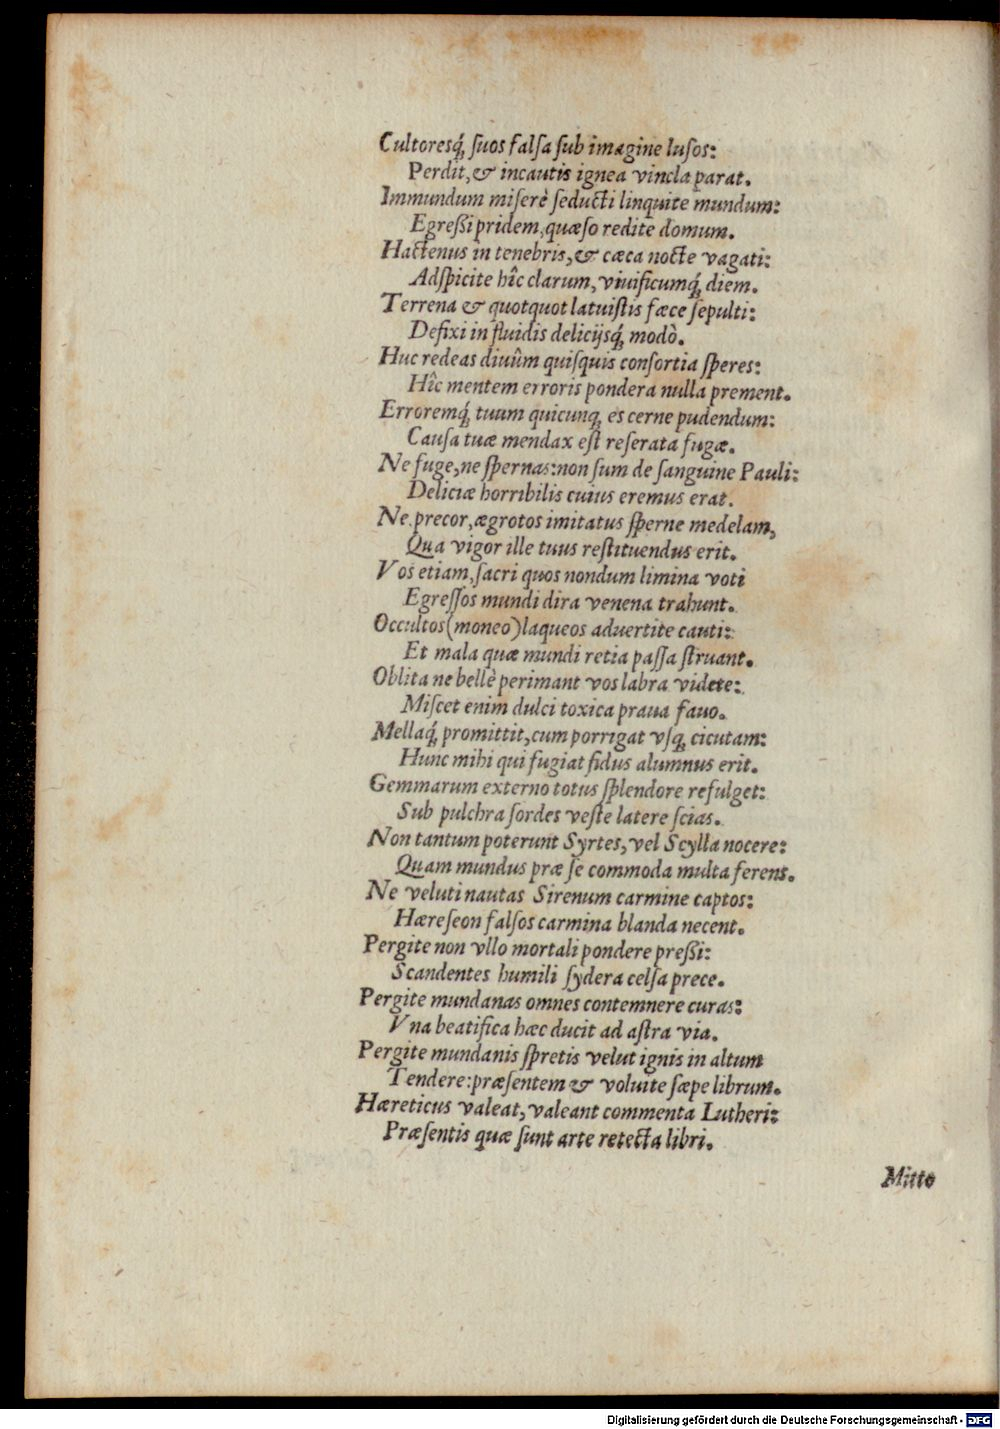 Cultoresq́; ſuos falſa ſub imagine luſos:
Perdit, & incautis ignea vincla parat.
Immundum miſerè ſeducti linquite mundum:
Egreßi pridem, quæſo redite domum.
Hactenus in tenebris, & cæca nocte vagati:
Adſpicite hîc clarum, viuificumq́; diem.
Terrena & quotquot latuiſtis fæce ſepulti:
Defixi in fluidis delicijsq́; modò.
Huc redeas diuûm quiſquis conſortia ſperes:
Hîc mentem erroris pondera nulla prement.
Erroremq́; tuum quicunq; es cerne pudendum:
Cauſa tuæ mendax eſt reſerata fugæ.
Ne fuge, ne ſpernas: non ſum de ſanguine Pauli:
Deliciæ horribilis cuius eremus erat.
Ne precor, ægrotos imitatus ſperne medelam,
Qua vigor ille tuus reſtituendus erit.
Vos etiam, ſacri quos nondum limina voti
Egreſſos mundi dira venena trahunt.
Occultos (moneo) laqueos aduertite cauti:
Et mala quæ mundi retia paſſa ſtruant.
Oblita ne bellè perimant vos labra videte:
Miſcet enim dulci toxica praua fauo.
Mellaq́; promittit, cum porrigat vſq; cicutam:
Hunc mihi qui fugiat fidus alumnus erit.
Gemmarum externo totus ſplendore refulget:
Sub pulchra ſordes veſte latere ſcias.
Non tantum poterunt Syrtes, vel Scylla nocere:
Quam mundus præ ſe commoda multa ferens.
Ne veluti nautas Sirenum carmine captos:
Hæreſeon falſos carmina blanda necent.
Pergite non vllo mortali pondere preßi:
Scandentes humili ſydera celſa prece.
Pergite mundanas omnes contemnere curas:
Vna beatifica hæc ducit ad aſtra via.
Pergite mundanis ſpretis velut ignis in altum
Tendere: præſentem & voluite ſæpe librum.
Hæreticus valeat, valeant commenta Lutheri:
Præſentis quæ ſunt arte retecta libri.
Mitto
Digitalisierung gefördert durch die Deutsche Forschungsgemeinschaft - DFG